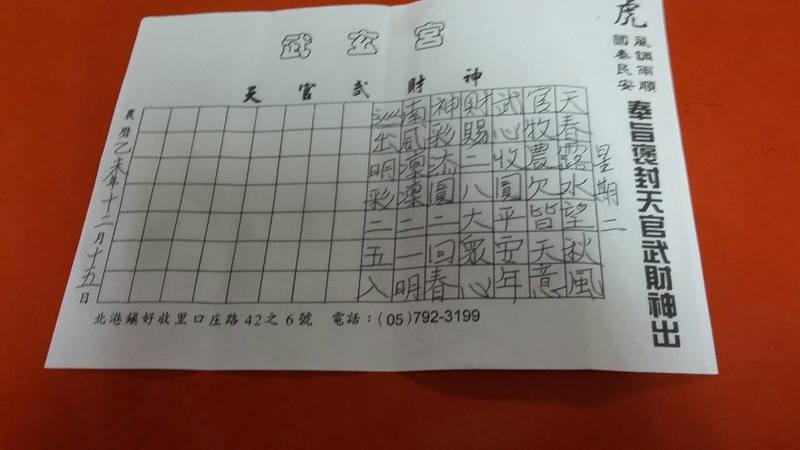 武玄宮
天官武財神
虎
風調雨順
國泰民安
奉旨褒封天官武財神出
星期二
天春露水望秋風
官牧農欠皆天意
武心收圓平安年
財賜二八大眾心
神彩添圓二回春
南風凜凜二一明
出明彩二五入
農曆乙未年十二月十五日
北港鎮好收里口庄路42之6號 電話：(05)792-3199